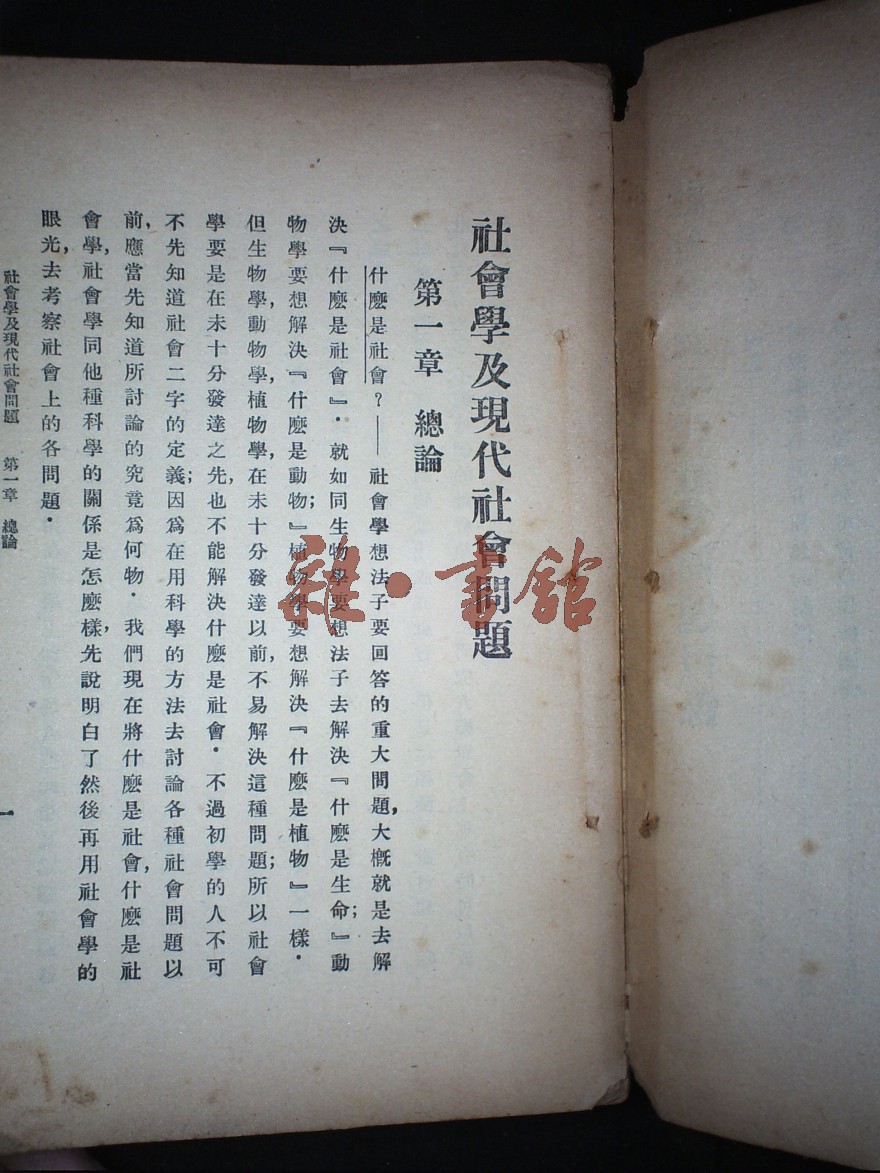 社會學及現代社會問題
第一章 總論
什麽是社會？——社會學想法子要回答的重大問題，大槪就是去解
決『什麽是社會』．就如同生物學要想法子去解決『什麽是生命；』動
物學要想解決『什麽是動物；』植物學要想解決『什麽是植物』一樣．
但生物學，動物學，植物學，在未十分發達以前，不易解決這種問題；所以社會
學要是在未十分發達之先，也不能解決什麽是社會．不過初學的人不可
不先知道社會二字的定義；因爲在用科學的方法去討論各種社會問題以
前，應當先知道所討論的究竟爲何物．我們現在將什麽是社會，什麽是社
會學，社會學同他種科學的關係是怎麽樣，先說明白了然後再用社會學的
眼光，去考察社會上的各問題．
社會學及現代社會問題 第一章 總論
一
雜·書館